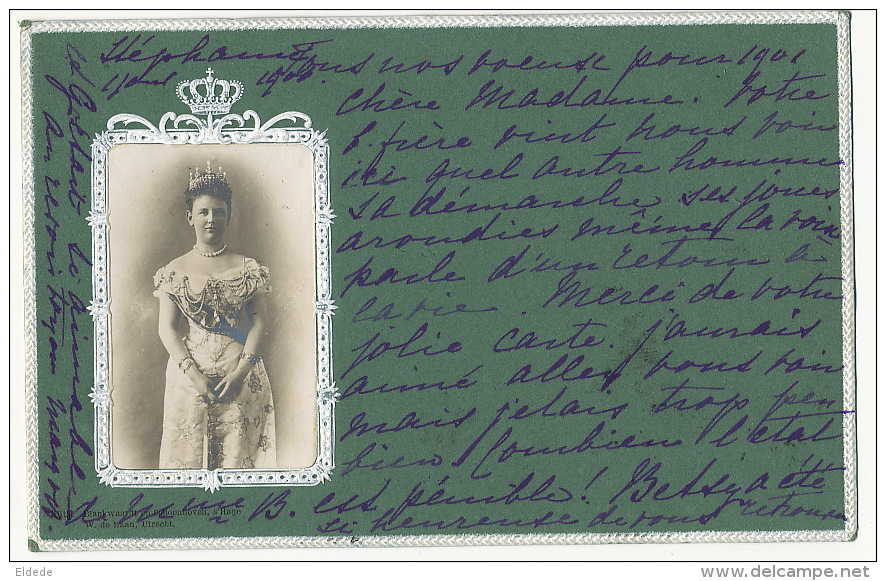 Tous nos voeux pour 1901
chère Madame. Votre
b. frère vint nous voir
ici quel autre homme
sa démarche ses joues
arondies même la voix
parle d'un retour à
la vie. Merci de votre
jolie carte. j'aurais
aimé aller vous voir
mais j'etais trop peu
bien. Combien l'état
de B. est pénible! Betsy a été
si heureuse de vous retrouver
Blankwaardt & Schoonhoven, s'Hage
W. de Haan, Utrecht.
Eldede
delcampe.net